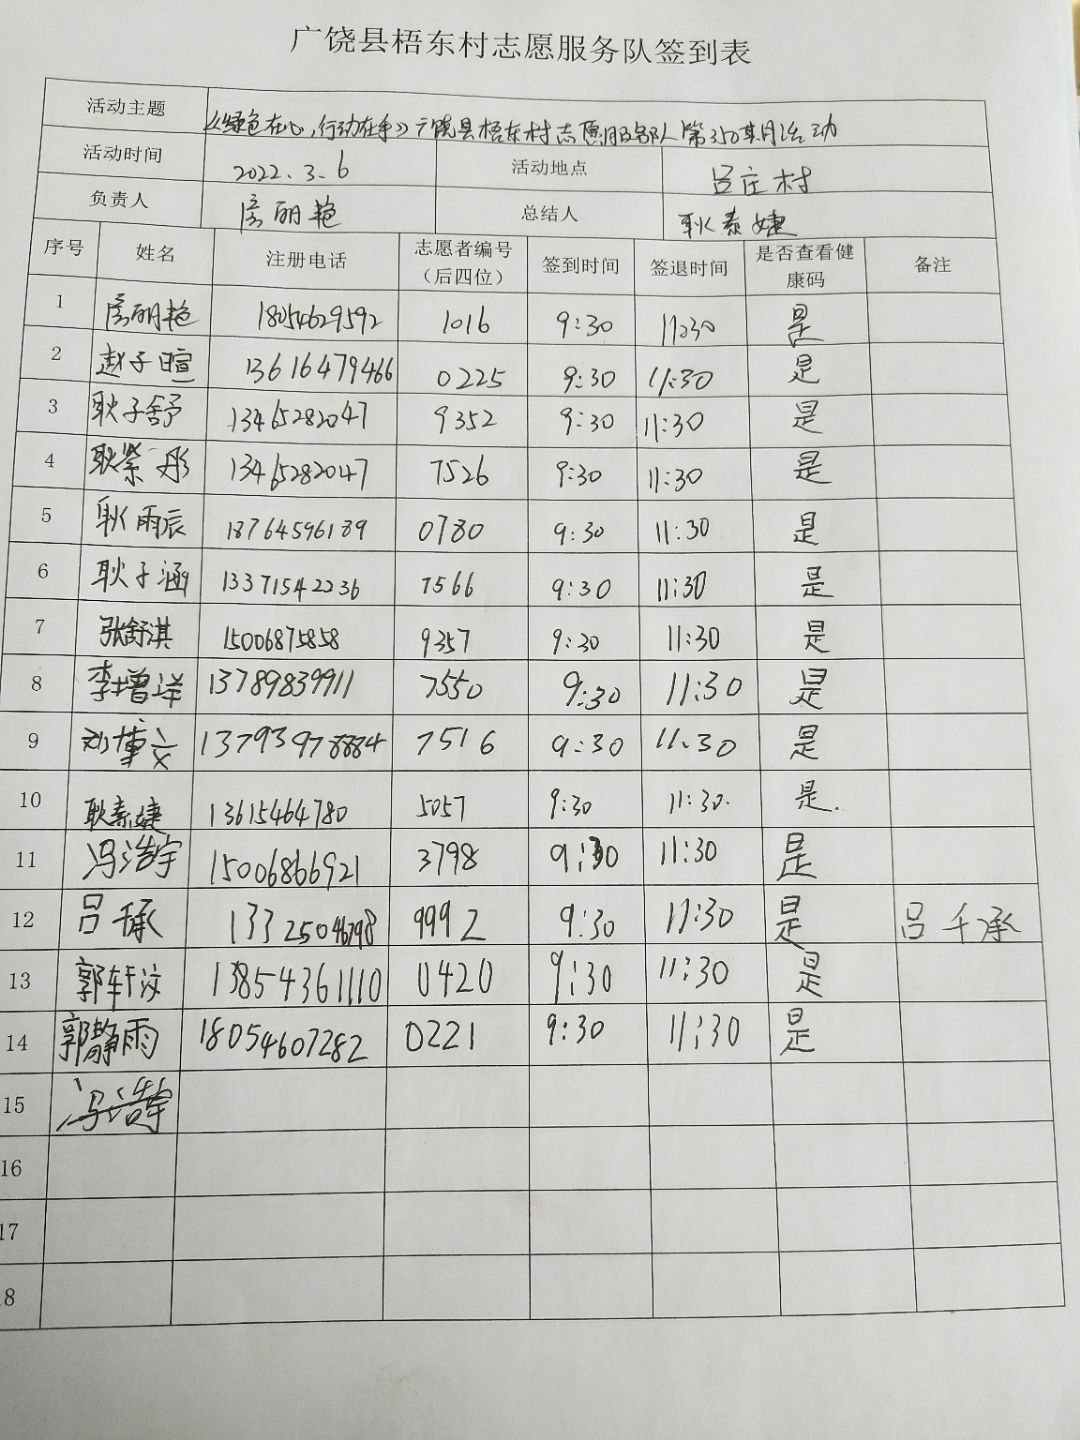 广饶县梧东村志愿服务队签到表
活动主题 《绿色在心,行动在手》广饶县梧东村志愿服务队第350期月活动
活动时间 2022.3.6 活动地点 吕庄村
负责人 房丽艳 总结人 耿素婕
序号 姓名 注册电话 志愿者编号（后四位） 签到时间 签退时间 是否查看健康码 备注
1 房丽艳 18054629592 1016 9:30 11:30 是
2 赵子暄 13616479466 0225 9:30 11:30 是
3 耿子舒 13465282047 9352 9:30 11:30 是
4 耿紫彤 13465282047 7526 9:30 11:30 是
5 耿雨辰 18764596189 0780 9:30 11:30 是
6 耿子涵 13371542236 7566 9:30 11:30 是
7 张舒淇 15006875858 9357 9:30 11:30 是
8 李增洋 13789839911 7550 9:30 11:30 是
9 刘博文 13793978884 7516 9:30 11:30 是
10 耿素婕 13615464780 5057 9:30 11:30. 是.
11 冯浩宇 15006866921 3798 9:30 11:30 是
12 吕千承 13325046798 9992 9:30 11:30 是 吕千承
13 郭轩汶 13854361110 0420 9:30 11:30 是
14 郭静雨 18054607282 0221 9:30 11:30 是
15 冯浩宇
16
17
18